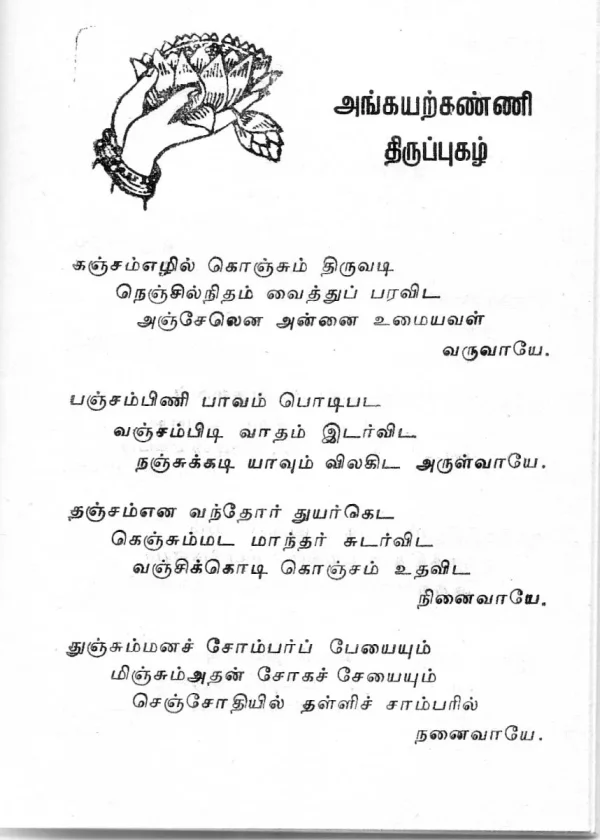 அங்கயற்கண்ணி
திருப்புகழ்
கஞ்சம்எழில் கொஞ்சும் திருவடி
நெஞ்சில்நிதம் வைத்துப் பரவிட
அஞ்சேலென அன்னை உமையவள்
வருவாயே.
பஞ்சம்பிணி பாவம் பொடிபட
வஞ்சம்பிடி வாதம் இடர்விட
நஞ்சுக்கடி யாவும் விலகிட அருள்வாயே.
தஞ்சம்என வந்தோர் துயர்கெட
கெஞ்சும்மட மாந்தர் சுடர்விட
வஞ்சிக்கொடி கொஞ்சம் உதவிட
நினைவாயே.
துஞ்சும்மனச் சோம்பர்ப் பேயையும்
மிஞ்சும்அதன் சோகச் சேயையும்
செஞ்சோதியில் தள்ளிச் சாம்பரில்
நனைவாயே.